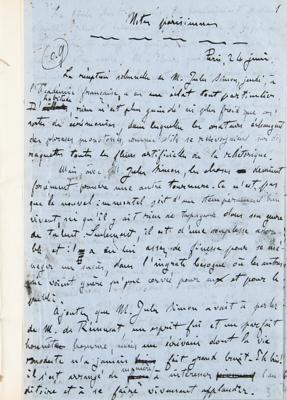 1
Notes parisiennes
Paris, 24 juin.
La réception solennelle de M. Jules Simon, jeudi, à
l'Académie française, a eu un éclat tout particulier.
D'habitude rien n'est plus guindé ni plus froid que ces
sortes de cérémonies, dans lesquelles les orateurs échangent
des phrases comme s'ils se
raquettes toutes les fleurs artificielles de la rhétorique.
Mais avec M. Jules Simon, les choses devaient
forcément prendre une autre tournure. Ce n'est pas
que le nouvel immortel soit d'un tempérament bien
vivant ni qu'il ait rien de tapageur dans son genre
de talent. Seulement, il est d'une souplesse
et il a eu assez de finesse pour se
ménager un succès, dans l'ingrate besogne où les autres
ne voient guère qu'une corvée pour eux et pour le
public.
Ajoutez que M. Jules Simon avait à parler
de M. de Rémusat, un esprit fin et un parfait
honnête homme, mais un écrivain dont la vie
n'a jamais fait grand bruit. Eh bien!
il s'est arrangé de manière à intéresser l'au-
ditoire et à se faire vivement applaudir.